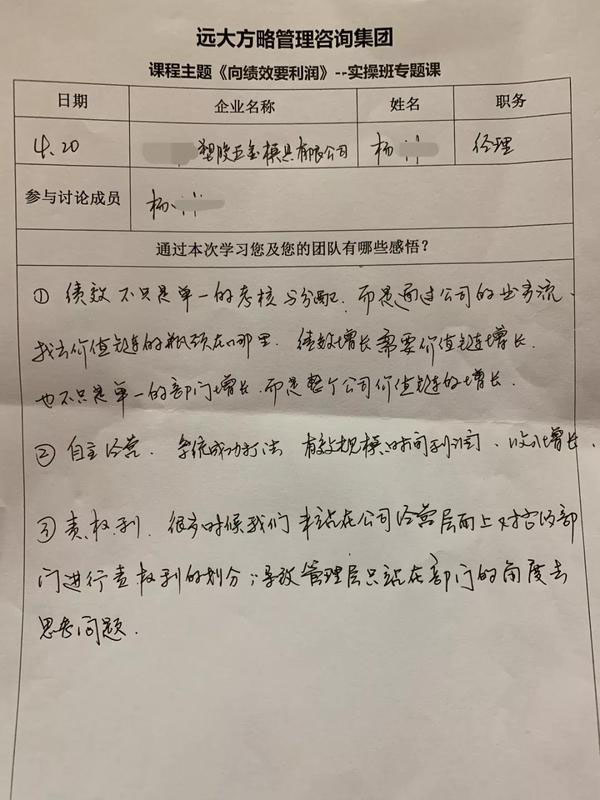 远大方略管理咨询集团
课程主题《向绩效要利润》--实操班专题课
日期 企业名称 姓名 职务
4.20 塑胶五金模具有限公司 杨 经理
参与讨论成员 杨
通过本次学习您及您的团队有哪些感悟？
① 绩效不只是单一的考核与分配，而是通过公司的业务流、
找出价值链的瓶颈在哪里，绩效增长需要价值链增长，
也不只是单一的部门增长，而是整个公司价值链的增长．
② 自主经营．系统成功打法 有效规模时间利润、收入增长．
③ 责权利，很多时候我们未站在公司经营层面上对各部
门进行责权利的划分；导致管理层只站在部门的角度去
思考问题．